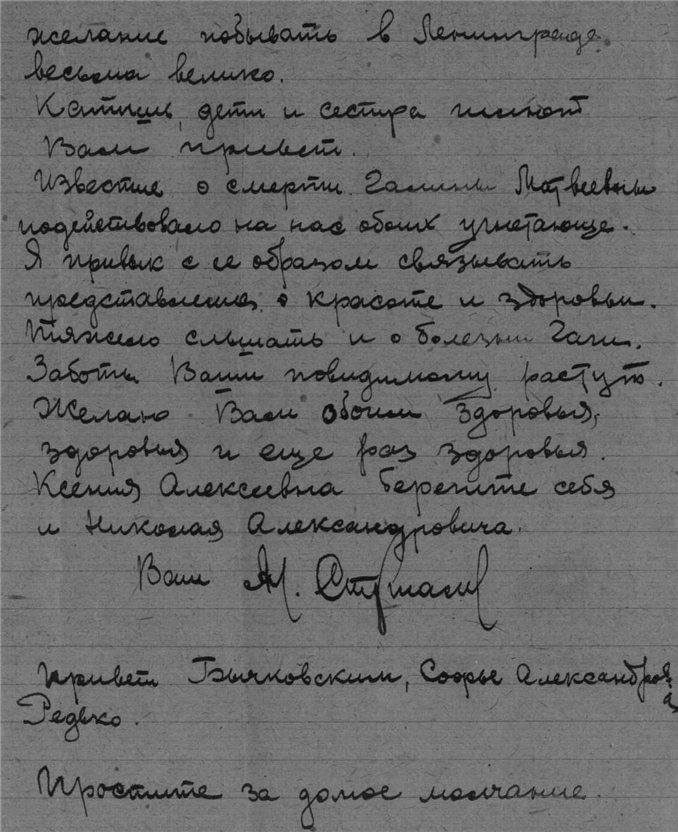 желание побывать в Ленинграде
весьма велико.
дети и сестра шлют
Вам привет.
Известие о смерти Галины Матвеевны
подействовало на нас обоих угнетающе.
Я привык с ее образом связывать
представление о красоте и здоровьи.
Тяжело слышать и о болезни Гали.
Заботы Ваши повидимому растут.
Желаю Вам обоим здоровья,
здоровья и еще раз здоровья.
Ксения Алексеевна берегите себя
и Николая Александровича.
Ваш М.
Привет Бычковским, Софье Александров
Редько.
Простите за долгое молчание.